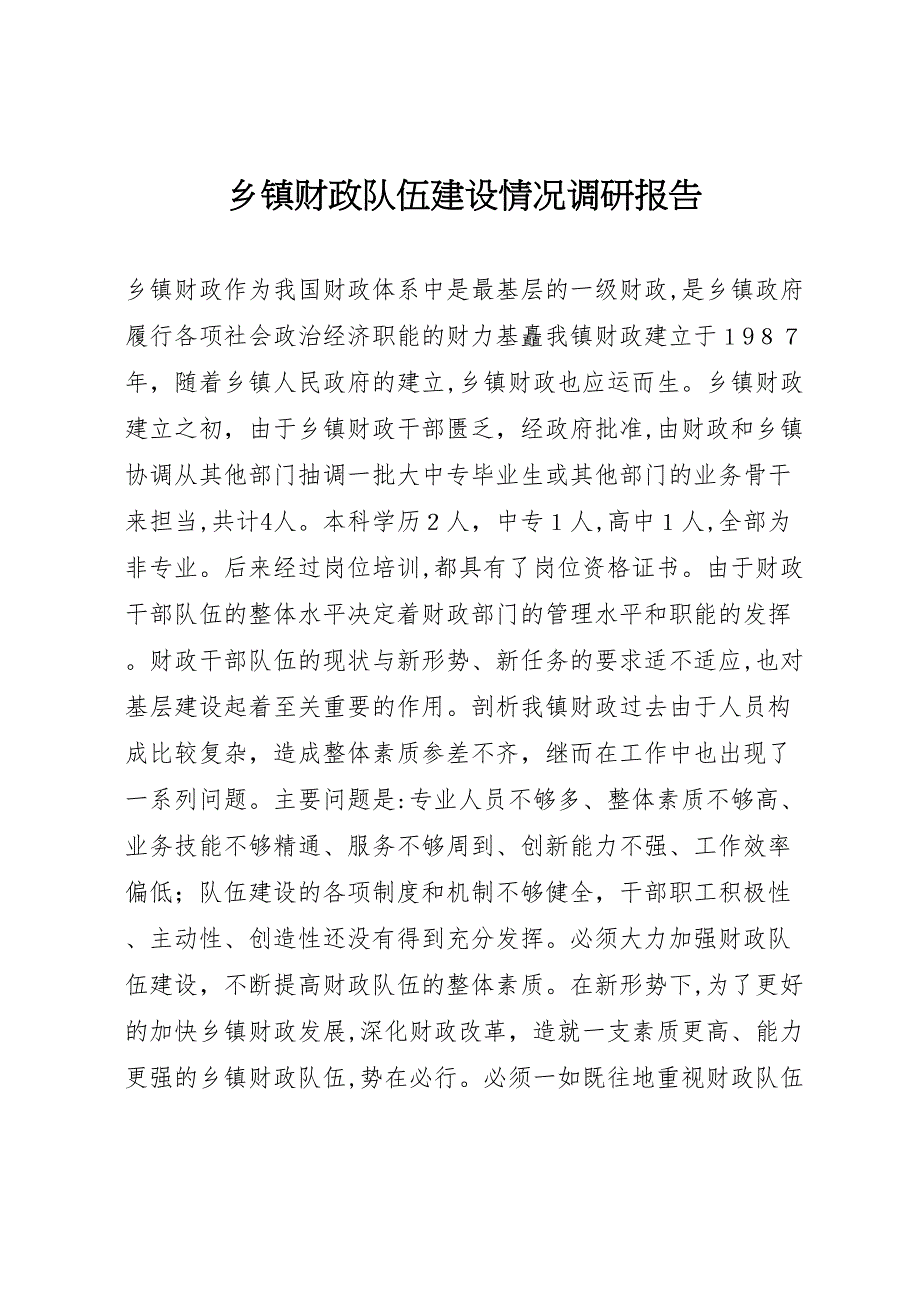 乡镇财政队伍建设情况调研报告
乡镇财政作为我国财政体系中是最基层的一级财政,是乡镇政府
履行各项社会政治经济职能的财力基矗我镇财政建立于１９８７
年，随着乡镇人民政府的建立,乡镇财政也应运而生。乡镇财政
建立之初，由于乡镇财政干部匮乏，经政府批准,由财政和乡镇
协调从其他部门抽调一批大中专毕业生或其他部门的业务骨干
来担当,共计4人。本科学历２人，中专１人,高中１人,全部为
非专业。后来经过岗位培训,都具有了岗位资格证书。由于财政
干部队伍的整体水平决定着财政部门的管理水平和职能的发挥
。财政干部队伍的现状与新形势、新任务的要求适不适应,也对
基层建设起着至关重要的作用。剖析我镇财政过去由于人员构
成比较复杂，造成整体素质参差不齐，继而在工作中也出现了
一系列问题。主要问题是:专业人员不够多、整体素质不够高、
业务技能不够精通、服务不够周到、创新能力不强、工作效率
偏低；队伍建设的各项制度和机制不够健全，干部职工积极性
、主动性、创造性还没有得到充分发挥。必须大力加强财政队
伍建设，不断提高财政队伍的整体素质。在新形势下,为了更好
的加快乡镇财政发展,深化财政改革，造就一支素质更高、能力
更强的乡镇财政队伍,势在必行。必须一如既往地重视财政队伍